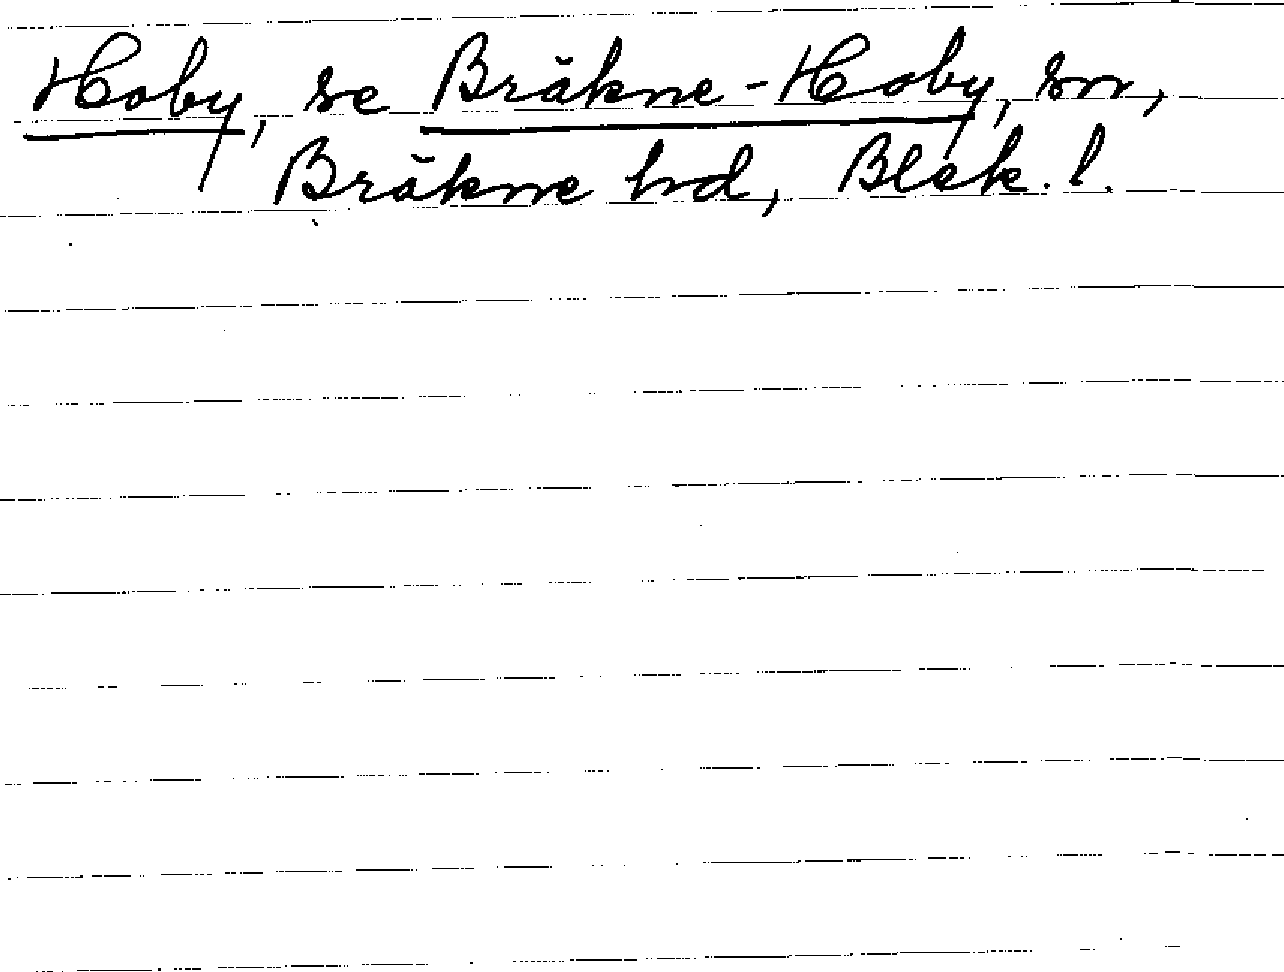 Hoby, se Bräkne-Hoby, sn,
Bräkne hd, Blek. l.